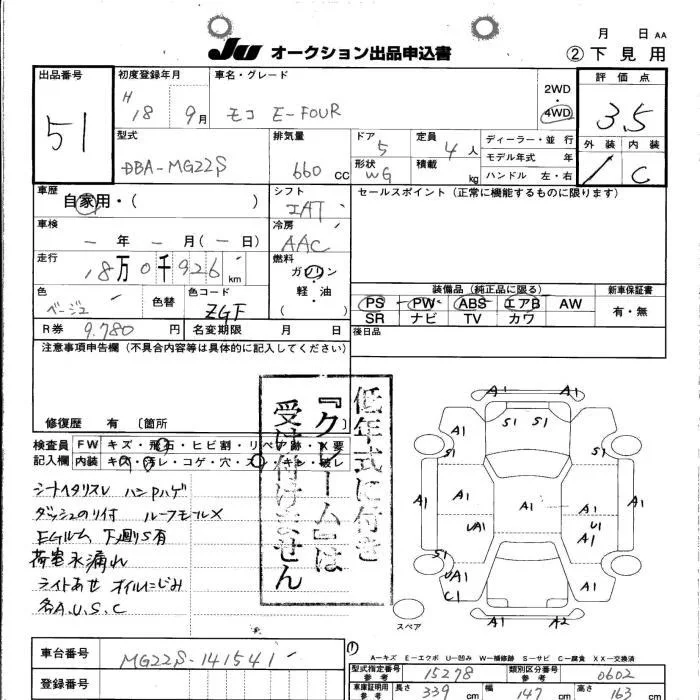 JU オークション出品申込書
月 日 AA
②下見用
出品番号
51
初度登録年月
H 18 9月
車名・グレード
モコ E-FOUR
2WD
4WD
評価点
3.5
外装 内装
C
型式
DBA-MG22S
排気量
660 CC
ドア
5
形状
WG
定員
4 人
積載
kg
ディーラー・並行
モデル年式 年
ハンドル 左・右
車歴
自家用・( )
シフト
IAT
セールスポイント(正常に機能するものに限ります)
車検
― 年 ― 月(― 日)
冷房
AAC
走行
18万0千926km
燃料
ガソリン
軽・油
( )
色
ベージュ
色替
色コード
ZGF
装備品(純正品に限る)
PS PW ABS エアB AW
SR ナビ TV カワ
新車保証書
有・無
R券 9.780 円
名変期限 月 日
後日品
注意事項申告欄(不具合内容等は具体的に記入してください)
修復歴 有 〔箇所
低年式に付き
『クレーム』は
受け付けません
検査員
記入欄
FW キズ・飛石・ヒビ割・リペア跡・X要
内装 キズ・汚レ・コゲ・穴・スレ・キレ・破レ
シートヘタリスレ ハンドルハゲ
ダッシュのり付 ルーフモールX
EGルーム 下廻りS有
荷室水漏れ
ライトあせ オイルにじみ
各A.U.S.C
A1
A1
A1
S1
S1
A1
S1
S1
A1
A1
A1
A1
A1
UA1
U1
S1
S1
UA1
C1
A1
A1
A2
スペア
車台番号
MG22S-141541
登録番号
①
A－キズ E－エクボ U－凹み W－補修跡 S－サビ C－腐食 XX－交換済
型式指定番号
参考
15278
類別区分番号
参考
0602
車庫証明用
参考
長さ 339 cm 幅 147 cm 高さ 162 cm